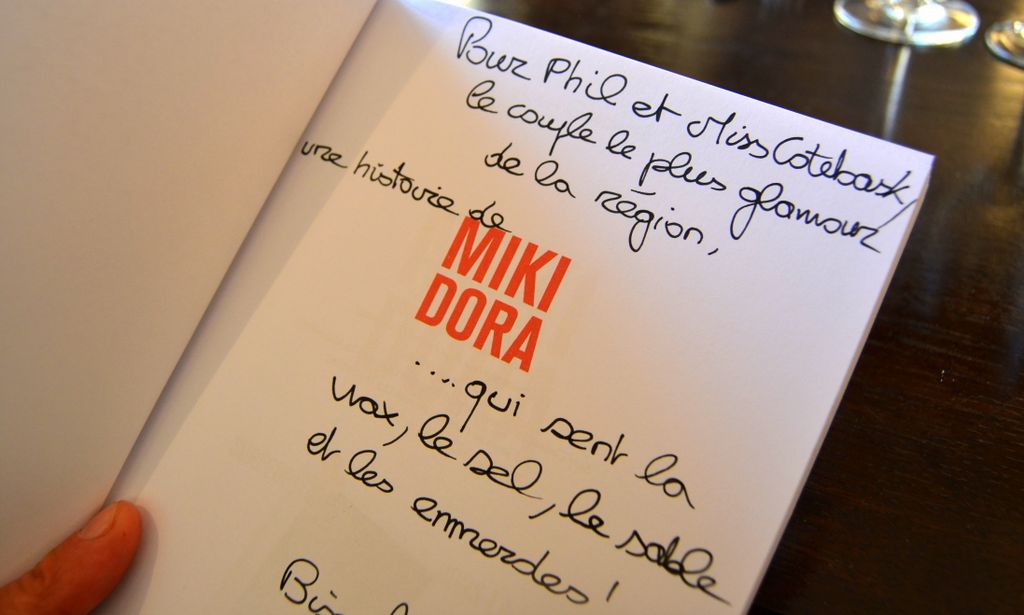 Pour Phil et Miss Cotebask,
le couple le plus glamour
de la région,
une histoire de
MIKI
DORA
....qui sent la
wax, le sel, le sable
et les emmerdes!